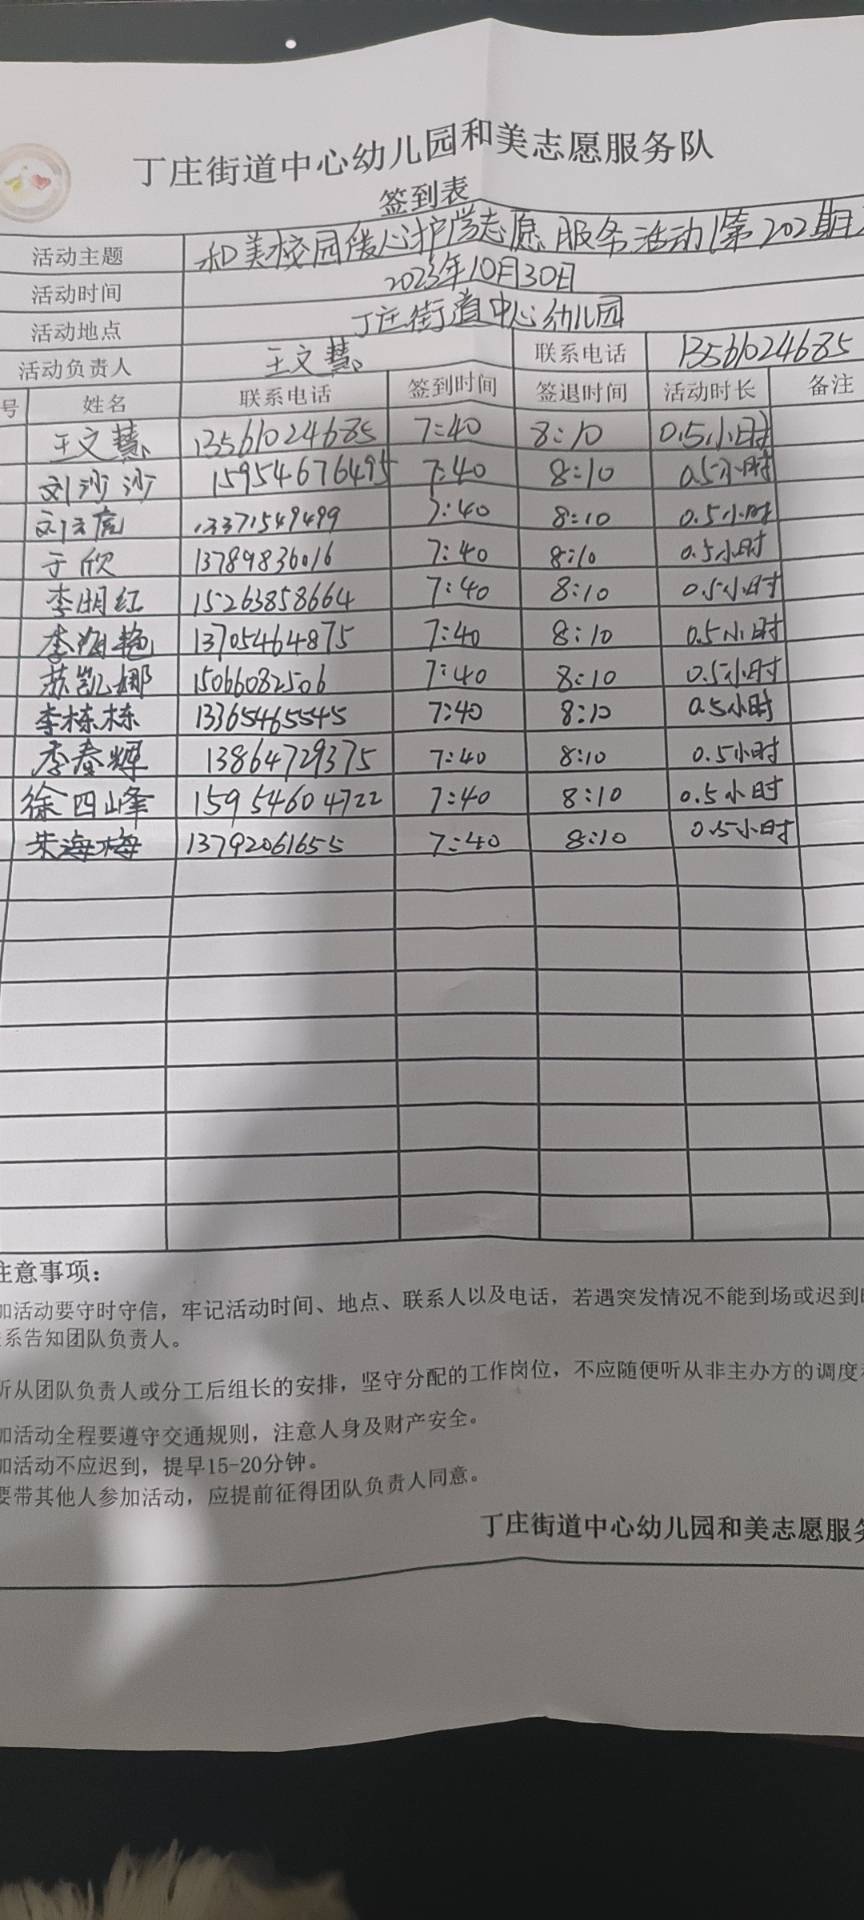 丁庄街道中心幼儿园和美志愿服务队
签到表
活动主题 和美校园暖心护学志愿服务活动(第202期
活动时间 2023年10月30日
活动地点 丁庄街道中心幼儿园
活动负责人 王文慧 联系电话 13561024685
号 姓名 联系电话 签到时间 签退时间 活动时长 备注
王文慧 13561024685 7:40 8:10 0.5小时
刘沙沙 15954676495 7:40 8:10 0.5小时
13371549499 7:40 8:10 0.5小时
于欣 13789836016 7:40 8:10 0.5小时
李明红 15263858664 7:40 8:10 0.5小时
李海艳 13705464875 7:40 8:10 0.5小时
苏凯娜 15066082506 7:40 8:10 0.5小时
李栋栋 13365465545 7:40 8:10 0.5小时
李春辉 13864729375 7:40 8:10 0.5小时
徐四峰 15954604722 7:40 8:10 0.5小时
朱海梅 13792061655 7:40 8:10 0.5小时
注意事项：
加活动要守时守信，牢记活动时间、地点、联系人以及电话，若遇突发情况不能到场或迟到
系告知团队负责人。
听从团队负责人或分工后组长的安排，坚守分配的工作岗位，不应随便听从非主办方的调度
加活动全程要遵守交通规则，注意人身及财产安全。
加活动不应迟到，提早15-20分钟。
要带其他人参加活动，应提前征得团队负责人同意。
丁庄街道中心幼儿园和美志愿服务